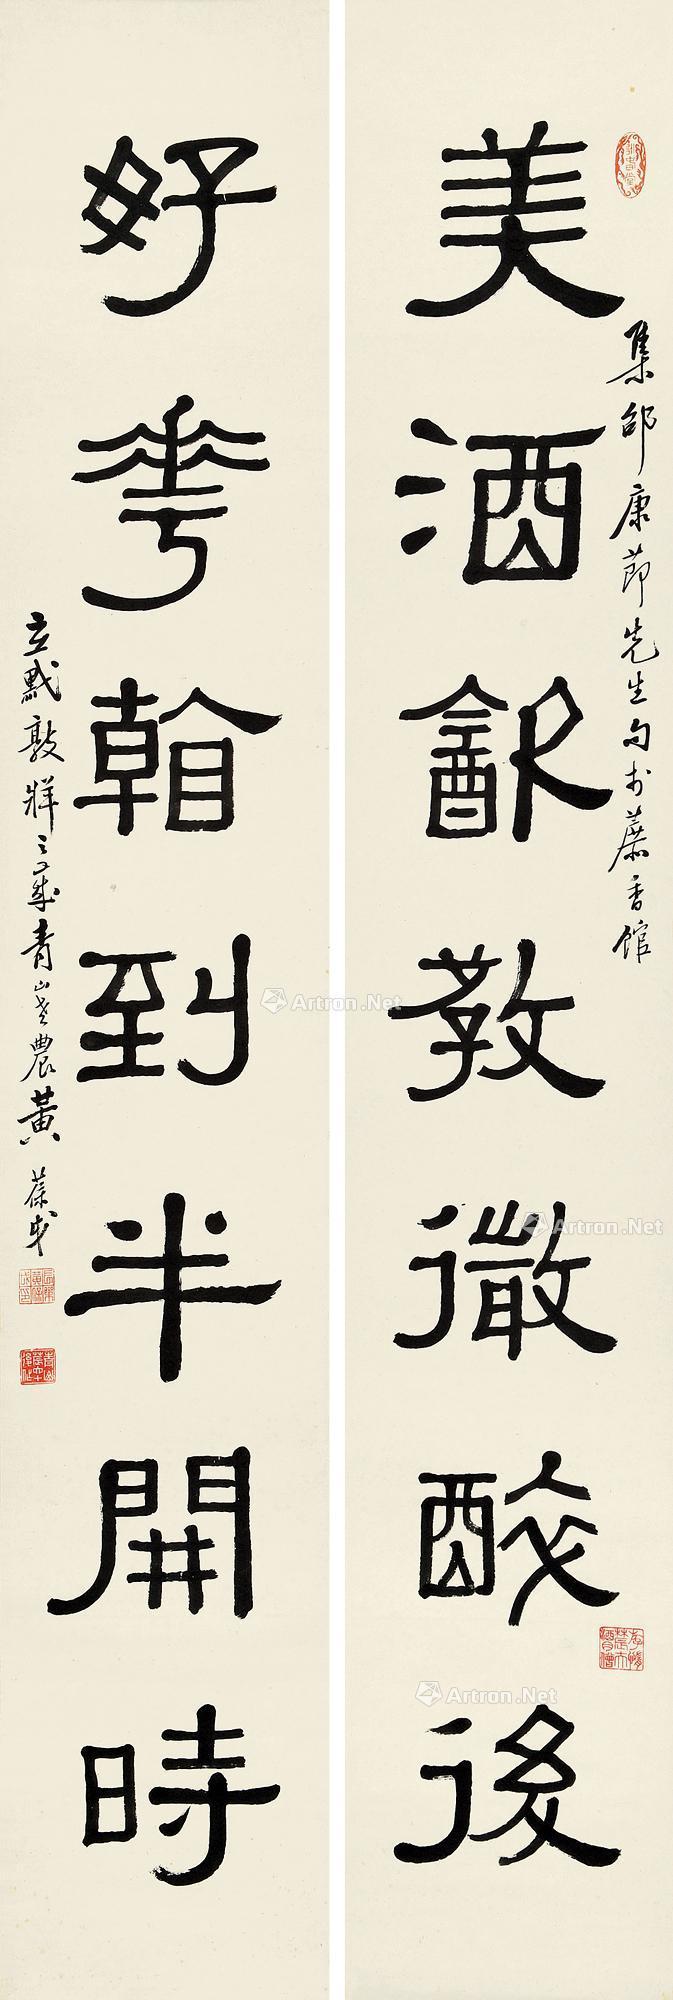 美酒㱃教微醉後
集邵康節先生句於蔗香館
好花看到半開時
玄黓敦牂之歲青山老農黃葆戉
Artron.Net
Artron.Net
Artron.Net